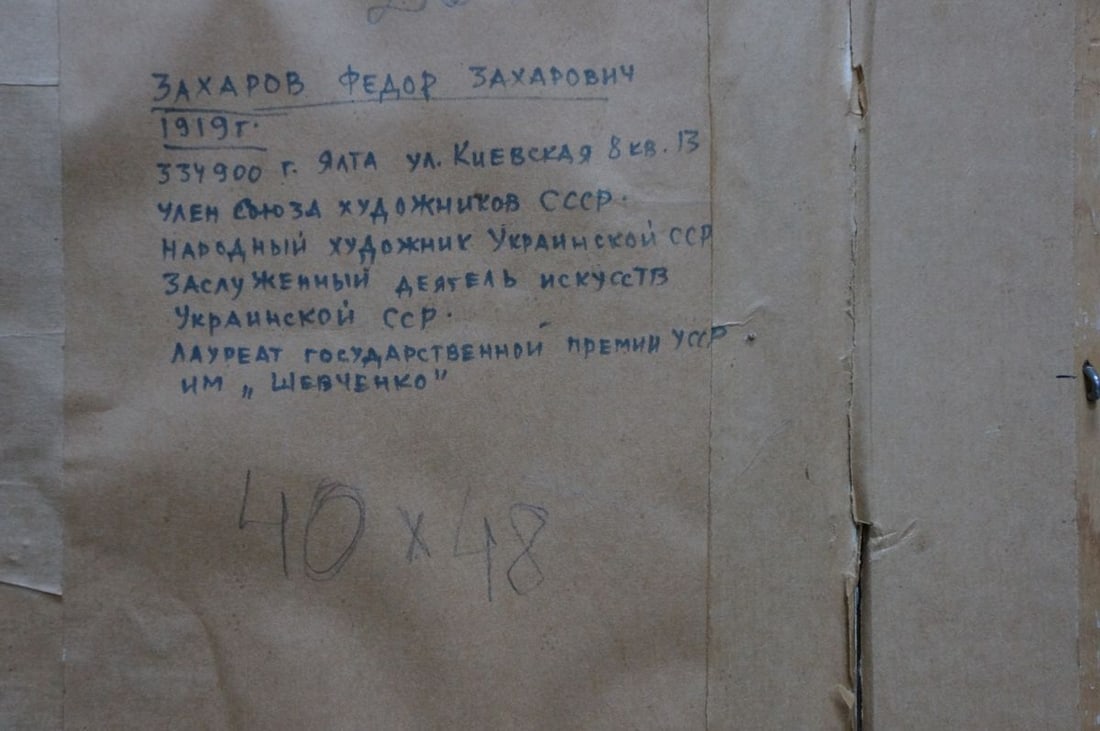 ЗАХАРОВ ФЕДОР ЗАХАРОВИЧ
1919г.
334900 г. ЯЛТА УЛ. КИЕВСКАЯ 8 КВ. 13
ЧЛЕН СОЮЗА ХУДОЖНИКОВ СССР.
НАРОДНЫЙ ХУДОЖНИК УКРАИНСКОЙ ССР
ЗАСЛУЖЕННЫЙ ДЕЯТЕЛЬ ИСКУССТВ
УКРАИНСКОЙ ССР.
ЛАУРЕАТ ГОСУДАРСТВЕННОЙ ПРЕМИИ УССР.
ИМ „ШЕВЧЕНКО"
40 х 48